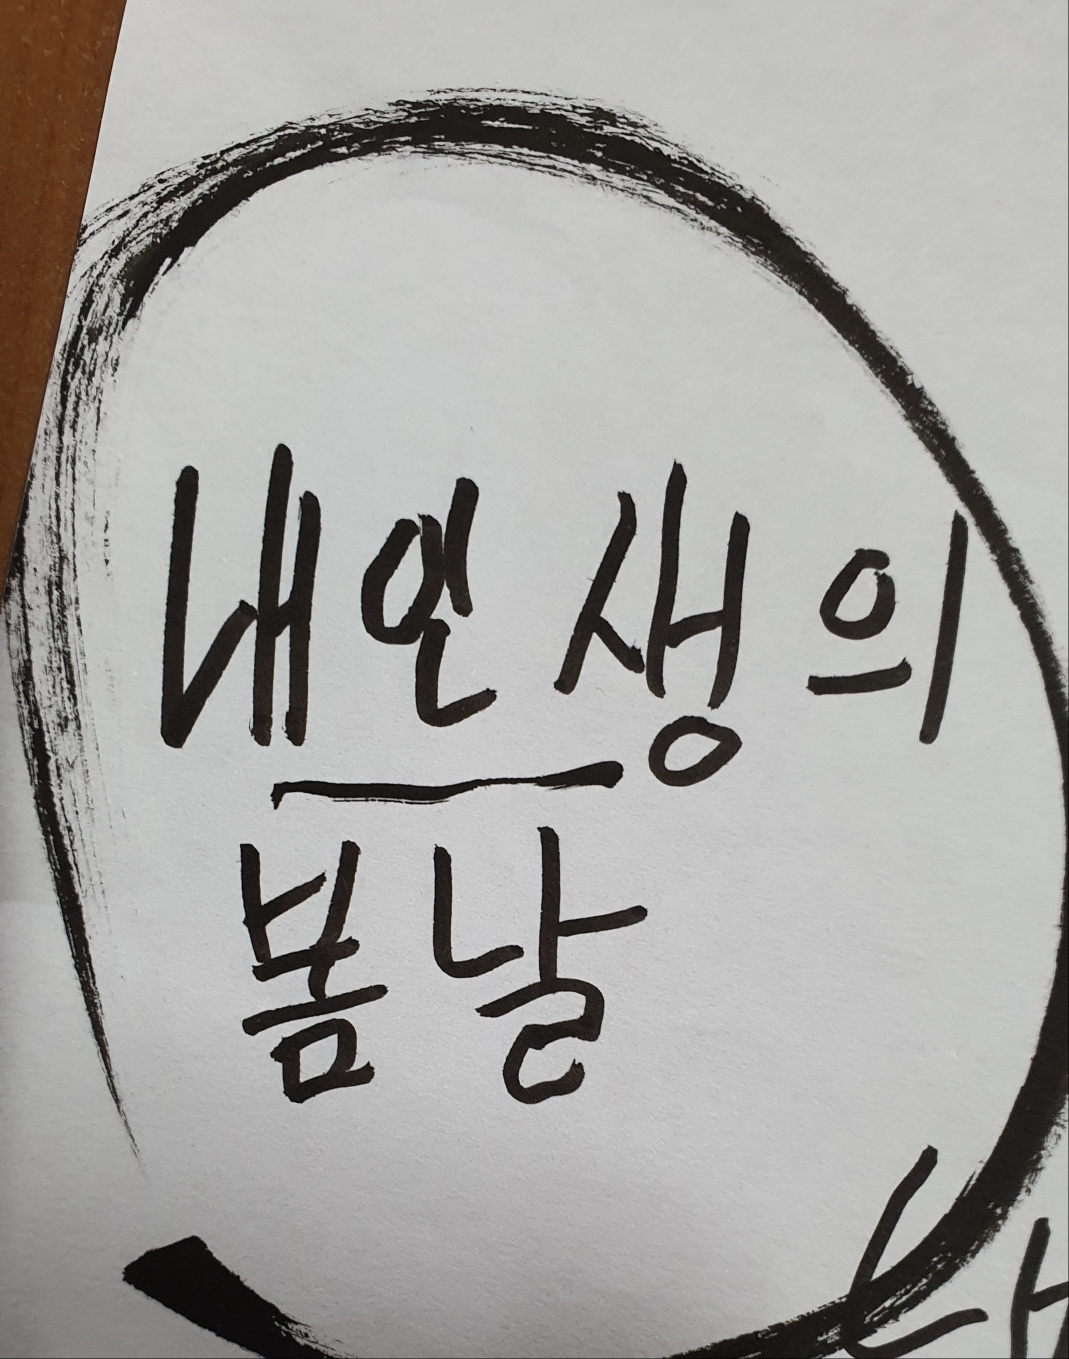 내인생의
봄날